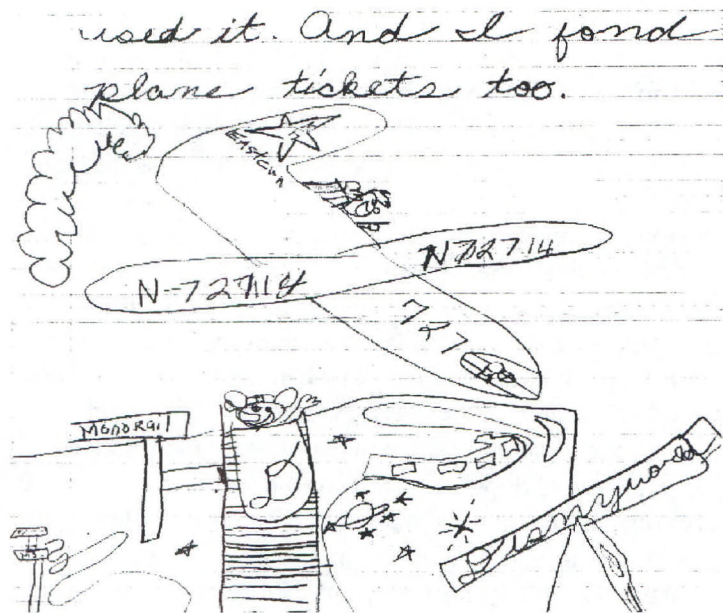 used it. And I fond
plane tickets too.
Eastern
N-72714
N72714
727
MONORail
D